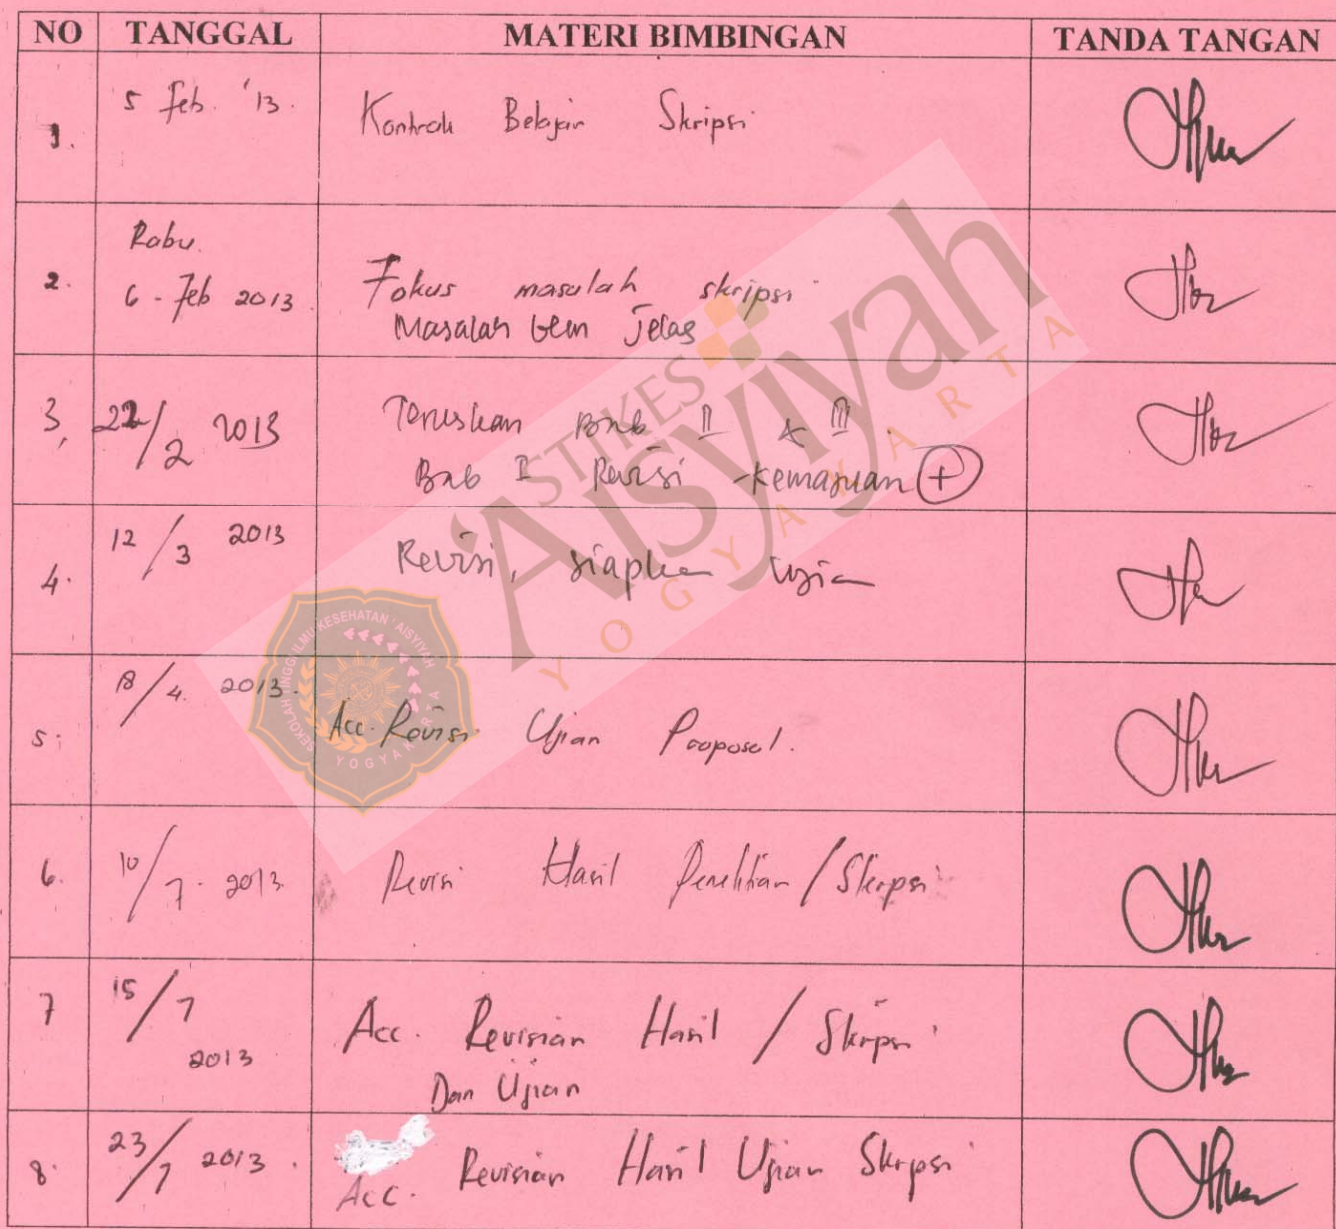 NO TANGGAL MATERI BIMBINGAN TANDA TANGAN
1. 5 Feb. '13. Kontrak Belajar Skripsi
Rabu.
2. 6 - Feb 2013 Fokus masalah skripsi
Masalah blm Jelas
3, 22/2 2013 Teruskan Bab II & III
Bab I Revisi - kemajuan (+)
4. 12/3 2013 Revisi, siapkan ujian
5. 18/4. 2013. Acc. Revisi Ujian Proposal.
6. 10/7 - 2013 Revisi Hasil Penelitian / Skripsi
7 15/7 2013 Acc. Revisian Hasil / Skripsi
Dan Ujian
8. 23/7 2013. Acc. Revisian Hasil Ujian Skripsi
STIKES
'Aisyiyah
YOGYAKARTA
SEKOLAH TINGGI ILMU KESEHATAN 'AISYIYAH
YOGYAKARTA